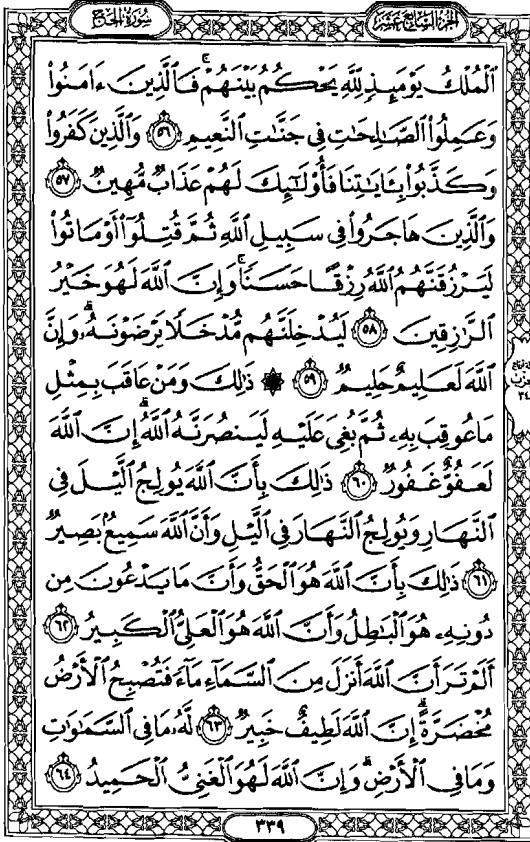 سُورَةُ الْحَجِّ
الجُزْءُ السَّابِعَ عَشَرَ
ٱلْمُلْكُ يَوْمَئِذٍ لِّلَّهِ يَحْكُمُ بَيْنَهُمْ ۚ فَٱلَّذِينَ ءَامَنُوا۟
وَعَمِلُوا۟ ٱلصَّٰلِحَٰتِ فِى جَنَّٰتِ ٱلنَّعِيمِ ٥٦ وَٱلَّذِينَ كَفَرُوا۟
وَكَذَّبُوا۟ بِـَٔايَٰتِنَا فَأُو۟لَٰٓئِكَ لَهُمْ عَذَابٌ مُّهِينٌ ٥٧
وَٱلَّذِينَ هَاجَرُوا۟ فِى سَبِيلِ ٱللَّهِ ثُمَّ قُتِلُوٓا۟ أَوْ مَاتُوا۟
لَيَرْزُقَنَّهُمُ ٱللَّهُ رِزْقًا حَسَنًا ۚ وَإِنَّ ٱللَّهَ لَهُوَ خَيْرُ
ٱلرَّٰزِقِينَ ٥٨ لَيُدْخِلَنَّهُم مُّدْخَلًا يَرْضَوْنَهُۥ ۗ وَإِنَّ
ٱللَّهَ لَعَلِيمٌ حَلِيمٌ ٥٩ ۞ ذَٰلِكَ وَمَنْ عَاقَبَ بِمِثْلِ
مَا عُوقِبَ بِهِۦ ثُمَّ بُغِىَ عَلَيْهِ لَيَنصُرَنَّهُ ٱللَّهُ ۗ إِنَّ ٱللَّهَ
لَعَفُوٌّ غَفُورٌ ٦٠ ذَٰلِكَ بِأَنَّ ٱللَّهَ يُولِجُ ٱلَّيْلَ فِى
ٱلنَّهَارِ وَيُولِجُ ٱلنَّهَارَ فِى ٱلَّيْلِ وَأَنَّ ٱللَّهَ سَمِيعٌۢ بَصِيرٌ
٦١ ذَٰلِكَ بِأَنَّ ٱللَّهَ هُوَ ٱلْحَقُّ وَأَنَّ مَا يَدْعُونَ مِن
دُونِهِۦ هُوَ ٱلْبَٰطِلُ وَأَنَّ ٱللَّهَ هُوَ ٱلْعَلِىُّ ٱلْكَبِيرُ ٦٢
أَلَمْ تَرَ أَنَّ ٱللَّهَ أَنزَلَ مِنَ ٱلسَّمَآءِ مَآءً فَتُصْبِحُ ٱلْأَرْضُ
مُخْضَرَّةً ۗ إِنَّ ٱللَّهَ لَطِيفٌ خَبِيرٌ ٦٣ لَّهُۥ مَا فِى ٱلسَّمَٰوَٰتِ
وَمَا فِى ٱلْأَرْضِ ۗ وَإِنَّ ٱللَّهَ لَهُوَ ٱلْغَنِىُّ ٱلْحَمِيدُ ٦٤
٣٣٩
٣٤